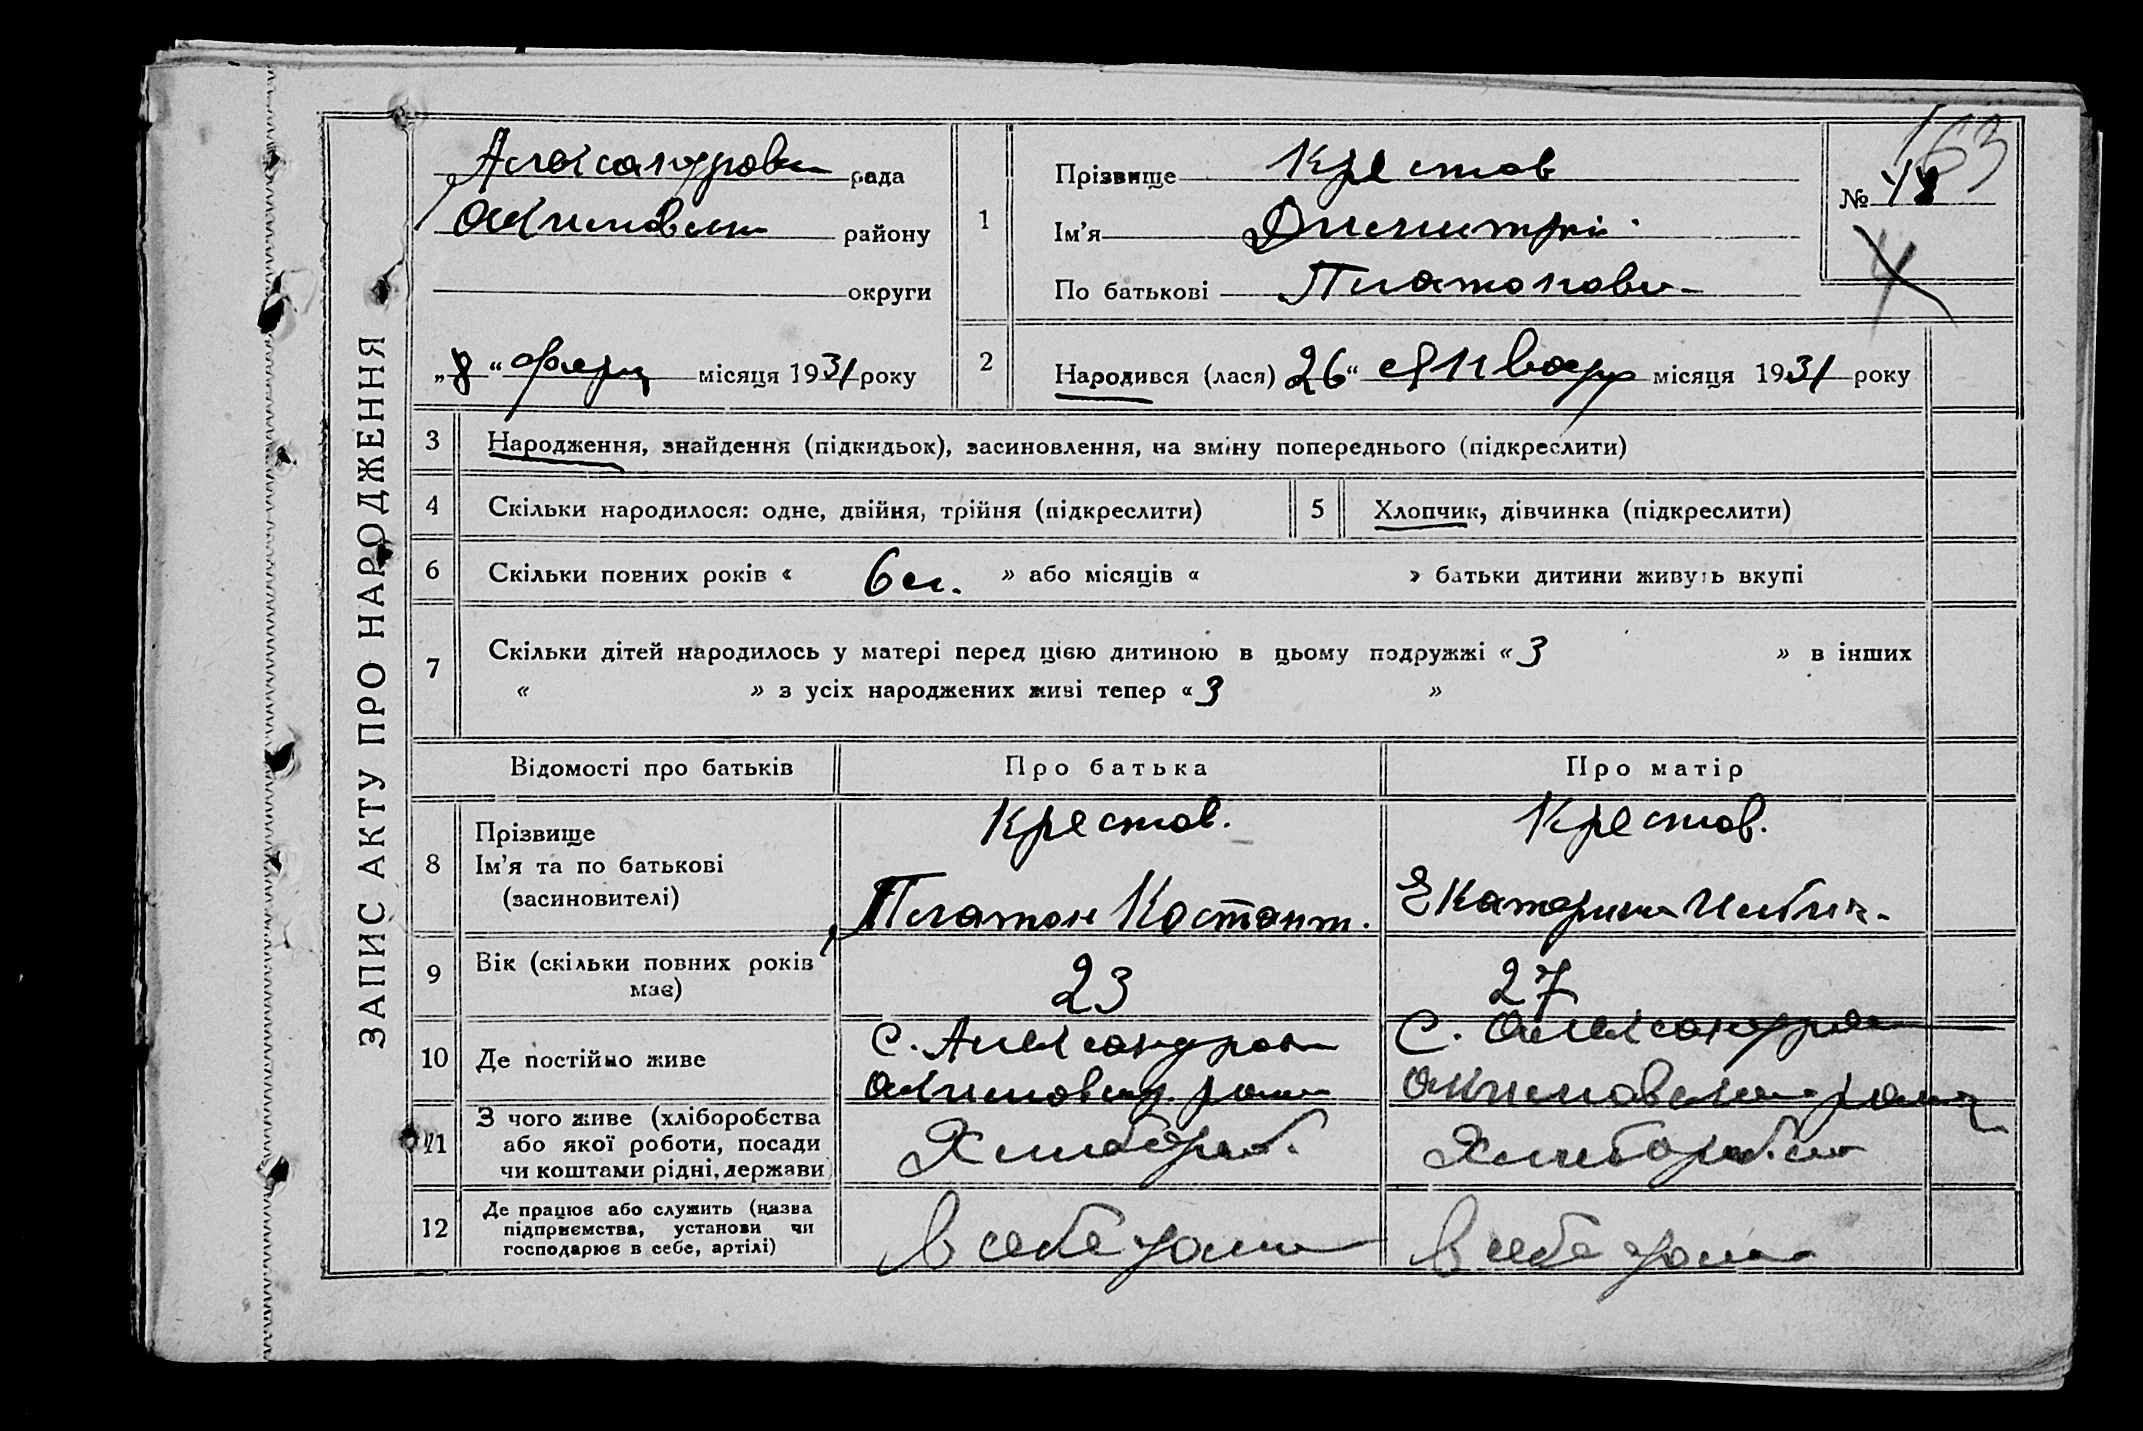 ЗАПИС АКТУ ПРО НАРОДЖЕННЯ
163
Александровк рада
Акимовськ району
округи
„8“ февр місяця 1931 року
1
Прізвище Крестов
Ім’я Дмитрій
По батькові Платонович
№ 18
2
Народився (лася) 26“ Январ місяця 1931 року
3 Народження, знайдення (підкидьок), засиновлення, на зміну попереднього (підкреслити)
4 Скільки народилося: одне, двійня, трійня (підкреслити)
5 Хлопчик, дівчинка (підкреслити)
6 Скільки повних років « 6 л. » або місяців « » батьки дитини живуть вкупі
7 Скільки дітей народилось у матері перед цією дитиною в цьому подружжі « 3 » в інших
« » з усіх народжених живі тепер « 3 »
Відомості про батьків Про батька Про матір
8 Прізвище
Ім’я та по батькові
(засиновителі)
Крестов.
Платон Костант.
Крестов.
Екатерина
9 Вік (скільки повних років
має)
23
27
10 Де постійно живе
С. Александровк
Акимовськ. рай
С. Александров
Акимовськ рай
11 З чого живе (хліборобства
або якої роботи, посади
чи коштами рідні, держави
Хлибороб.
Хлибороб.
12 Де працює або служить (назва
підприємства, установи чи
господарює в себе, артілі)
В себе
В себе